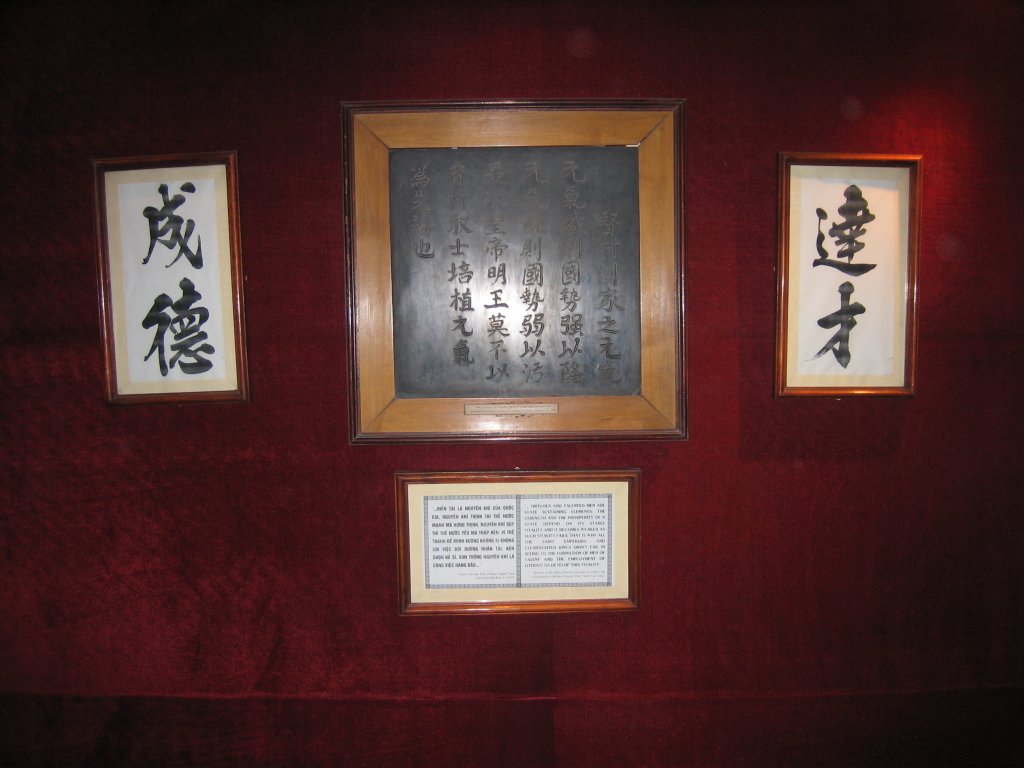 成德
賢才國家之元氣
元氣盛則國勢强以隆
元氣餒則國勢弱以污
是以聖帝明王莫不以
育材取士培植元氣
為先務也
達才
...HIỀN TÀI LÀ NGUYÊN KHÍ CỦA QUỐC
GIA, NGUYÊN KHÍ THỊNH THÌ THẾ NƯỚC
MẠNH MÀ HƯNG THỊNH, NGUYÊN KHÍ SUY
THÌ THẾ NƯỚC YẾU MÀ THẤP HÈN. VÌ THẾ
THÁNH ĐẾ MINH VƯƠNG KHÔNG AI KHÔNG
COI VIỆC BỒI DƯỠNG NHÂN TÀI, KÉN
CHỌN KẺ SĨ, VUN TRỒNG NGUYÊN KHÍ LÀ
CÔNG VIỆC HÀNG ĐẦU...
... VIRTUOUS AND TALENTED MEN ARE
STATE SUSTAINING ELEMENTS: THE
STRENGTH AND THE PROSPERITY OF A
STATE DEPEND ON ITS STABLE
VITALITY AND IT BECOMES WEAKER AS
SUCH VITALITY FAILS. THAT IS WHY ALL
THE SAINT EMPERORS AND
CLEARSIGHTED KINGS DIDN'T FAIL IN
SEEING TO THE FORMATION OF MEN OF
TALENT AND THE EMPLOYMENT OF
LITERATI TO DEVELOP THIS VITALITY...